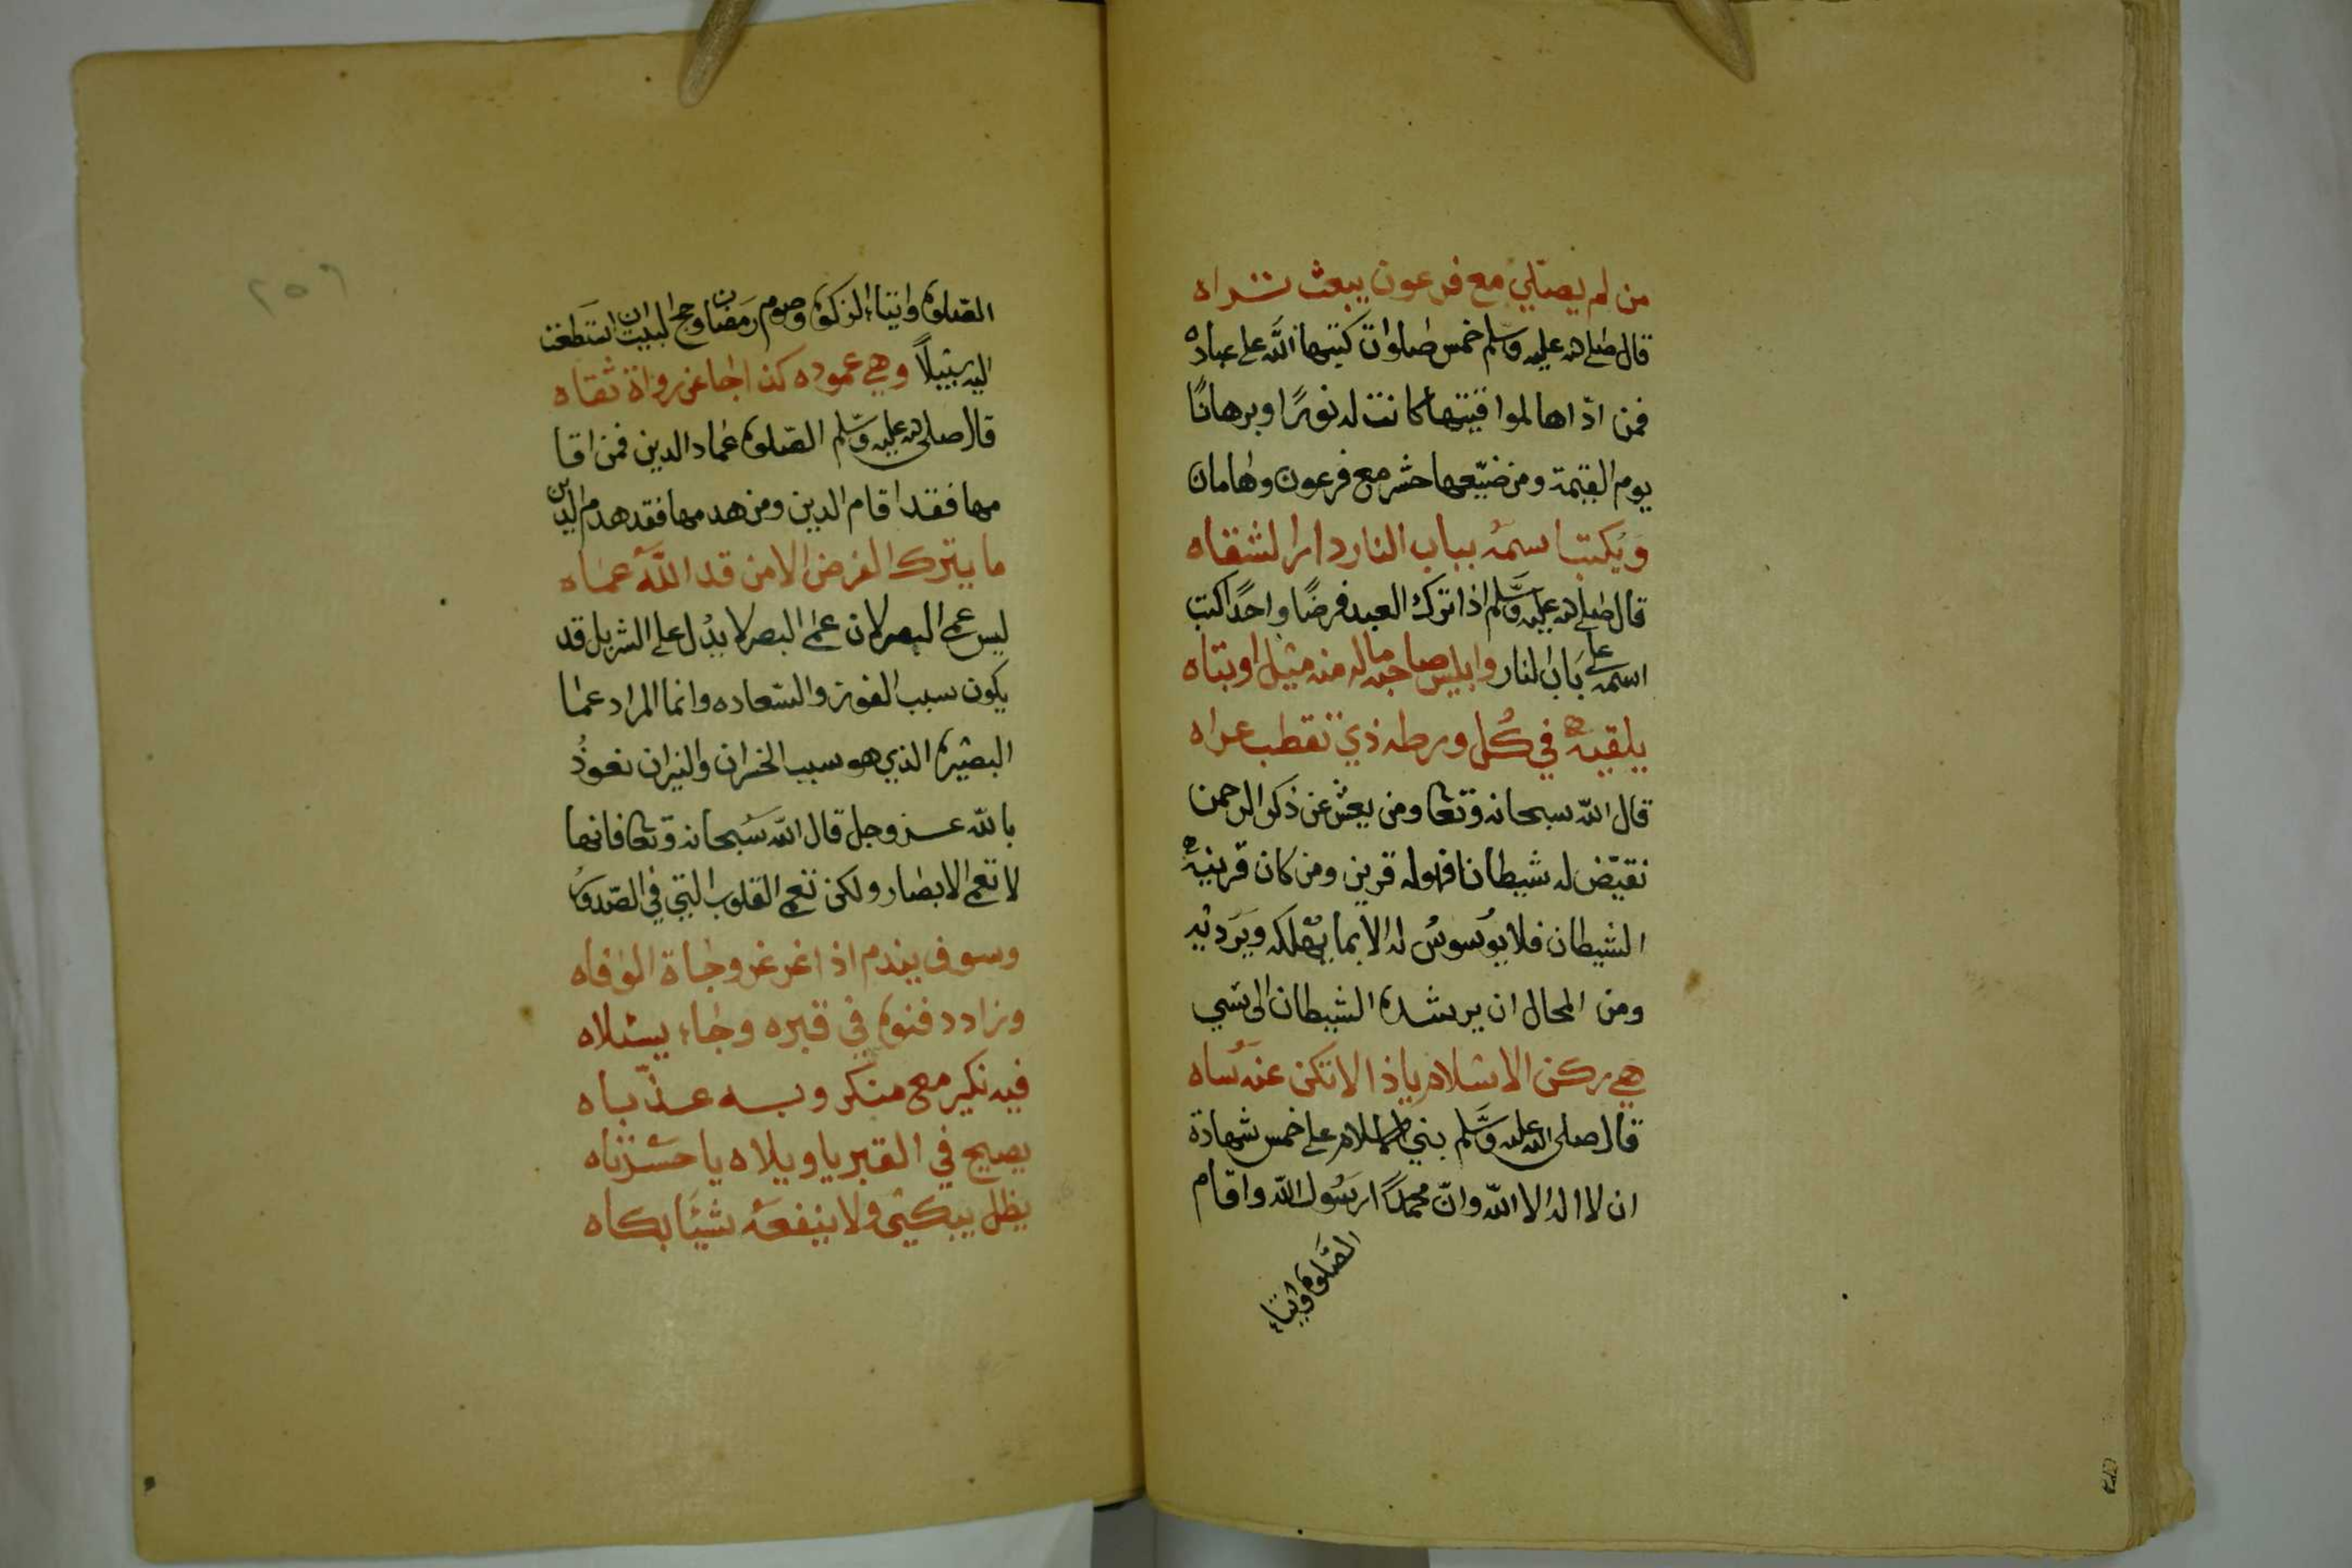 من لم يصلي مع فرعون يبعث تراه
قال صلى الله عليه وسلم خمس صلوات كتبها الله على عباده
فمن ادّاها لمواقيتها كانت له نورًا وبرهانًا
يوم القيمة ومن ضيّعها حشر مع فرعون وهامان
ويُكتب اسمه بباب النار دار الشقاه
قال صلى الله عليه وسلم اذا ترك العبد فرضًا واحدًا كتب
اسمه على باب النار وابليس صاحبه ماله منه مثيل اوبتاه
يلقيه في كل ورطه ذي تقطب عراه
قال الله سبحانه وتعا ومن يعش عن ذكر الرحمن
نقيّض له شيطانا فهو له قرين ومن كان قرينه
الشيطان فلا يوسوسُ له الا بما يهلكه ويرديه
ومن المحال ان يرشده الشيطان الى شي
هي ركن الاسلام يا ذا لا تكن عنه ساه
قال صلى الله عليه وسلم بني الاسلام على خمس شهادة
ان لا اله الا الله وانّ محمدًا رسول الله واقام
الصلوة وايتاء
٢٥٦
الصلوة وايتاء الزكوة وصوم رمضان وحج البيت ان استطعت
اليه سبيلاً وهي عموده كذا جا عن رواة ثقاه
قال صلى الله عليه وسلم الصلوة عماد الدين فمن اقا
مها فقد اقام الدين ومن هدمها فقد هدم الدين
ما يترك الفرض الا من قد الله عماه
ليس عمى البصر لان عمى البصر لا يدُل على الشر بل قد
يكون سبب الفوز والسعاده وانما المراد عما
البصيرة الذي هو سبب الخسران والنيران نعوذُ
بالله عز وجل قال الله سبحانه وتعا فانها
لا تعمى الابصار ولكن تعمى القلوب التي في الصدور
وسوف يندم اذا غرغر وجاة الوفاه
وزاد دفنوه في قبره وجاء يسئلاه
فيه نكير مع منكر وبه عذّباه
يصيح في القبر يا ويلاه يا حسرتاه
يظل يبكي ولا ينفعه شيئا بكاه